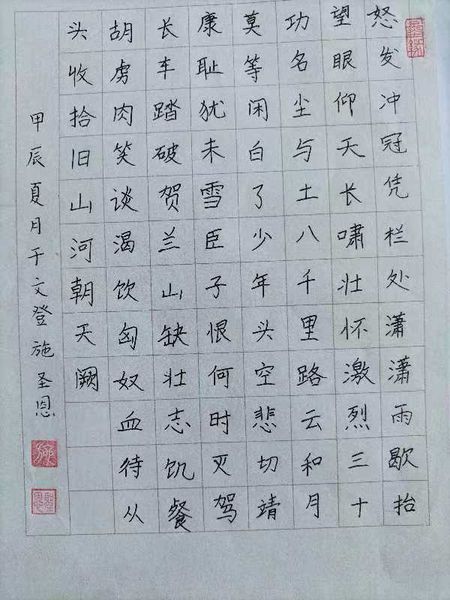 怒发冲冠凭栏处潇潇雨歇抬
望眼仰天长啸壮怀激烈三十
功名尘与土八千里路云和月
莫等闲白了少年头空悲切靖
康耻犹未雪臣子恨何时灭驾
长车踏破贺兰山缺壮志饥餐
胡虏肉笑谈渴饮匈奴血待从
头收拾旧山河朝天阙
甲辰夏月于文登施圣恩